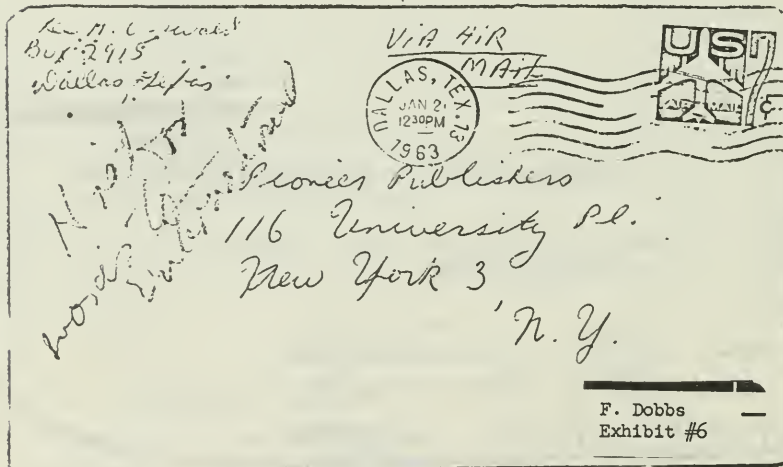 Box 2915
Dallas, Texas
VIA AIR
MAIL
DALLAS, TEX. 13
JAN 2
1230PM
1963
US
AIR MAIL
7
Pioneer Publishers
116 University Pl.
New York 3
N. Y.
F. Dobbs
Exhibit #6